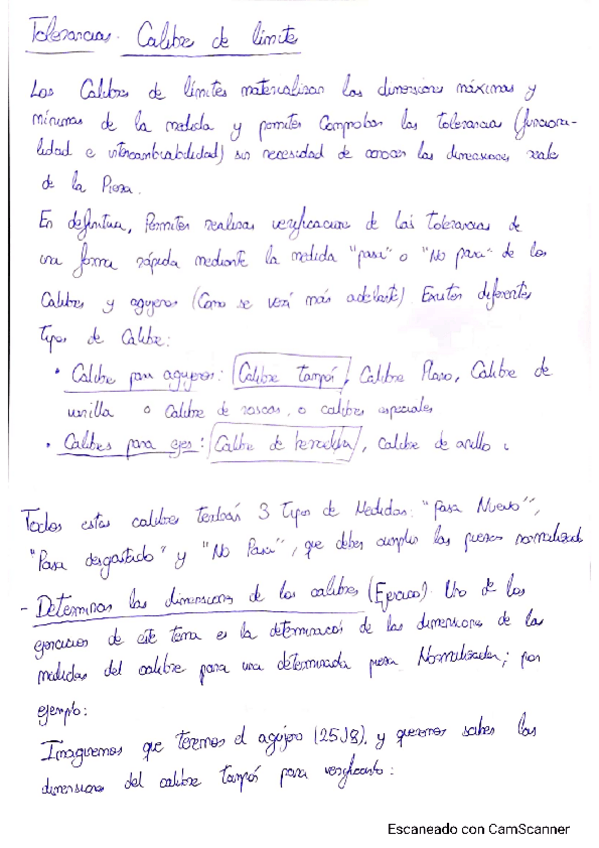 Tolerancias. Calibre de límite
Los Calibres de límites materializan las dimensiones máximas y
mínimas de la medida y permiten Comprobar las tolerancias (funciona-
lidad e intercambiabilidad) sin necesidad de conocer las dimensiones reales
de la Pieza.
En definitiva, Permiten realizar verificaciones de las tolerancias de
una forma rápida mediante la medida "pasa" o "No pasa" de los
Calibres y agujeros (Como se verá más adelante). Existen diferentes
tipos de Calibre:
• Calibre para agujeros: Calibre tampón, Calibre Plano, Calibre de
varilla o Calibre de roscas, o calibres especiales
• Calibres para ejes: Calibre de herradura, calibre de anillo
Todos estos calibres tendrán 3 tipos de Medidas: "Pasa Nuevo",
"Pasa desgastado" y "No Pasa", que deben cumplir las piezas normalizadas
- Determinar las dimensiones de los calibres (Ejercicio). Uno de los
ejercicios de este tema es la determinación de las dimensiones de las
medidas del calibre para una determinada pieza Normalizada; por
ejemplo:
Imaginemos que tenemos el agujero (25J8), y queremos saber las
dimensiones del calibre tampón para verificarlo:
Escaneado con CamScanner